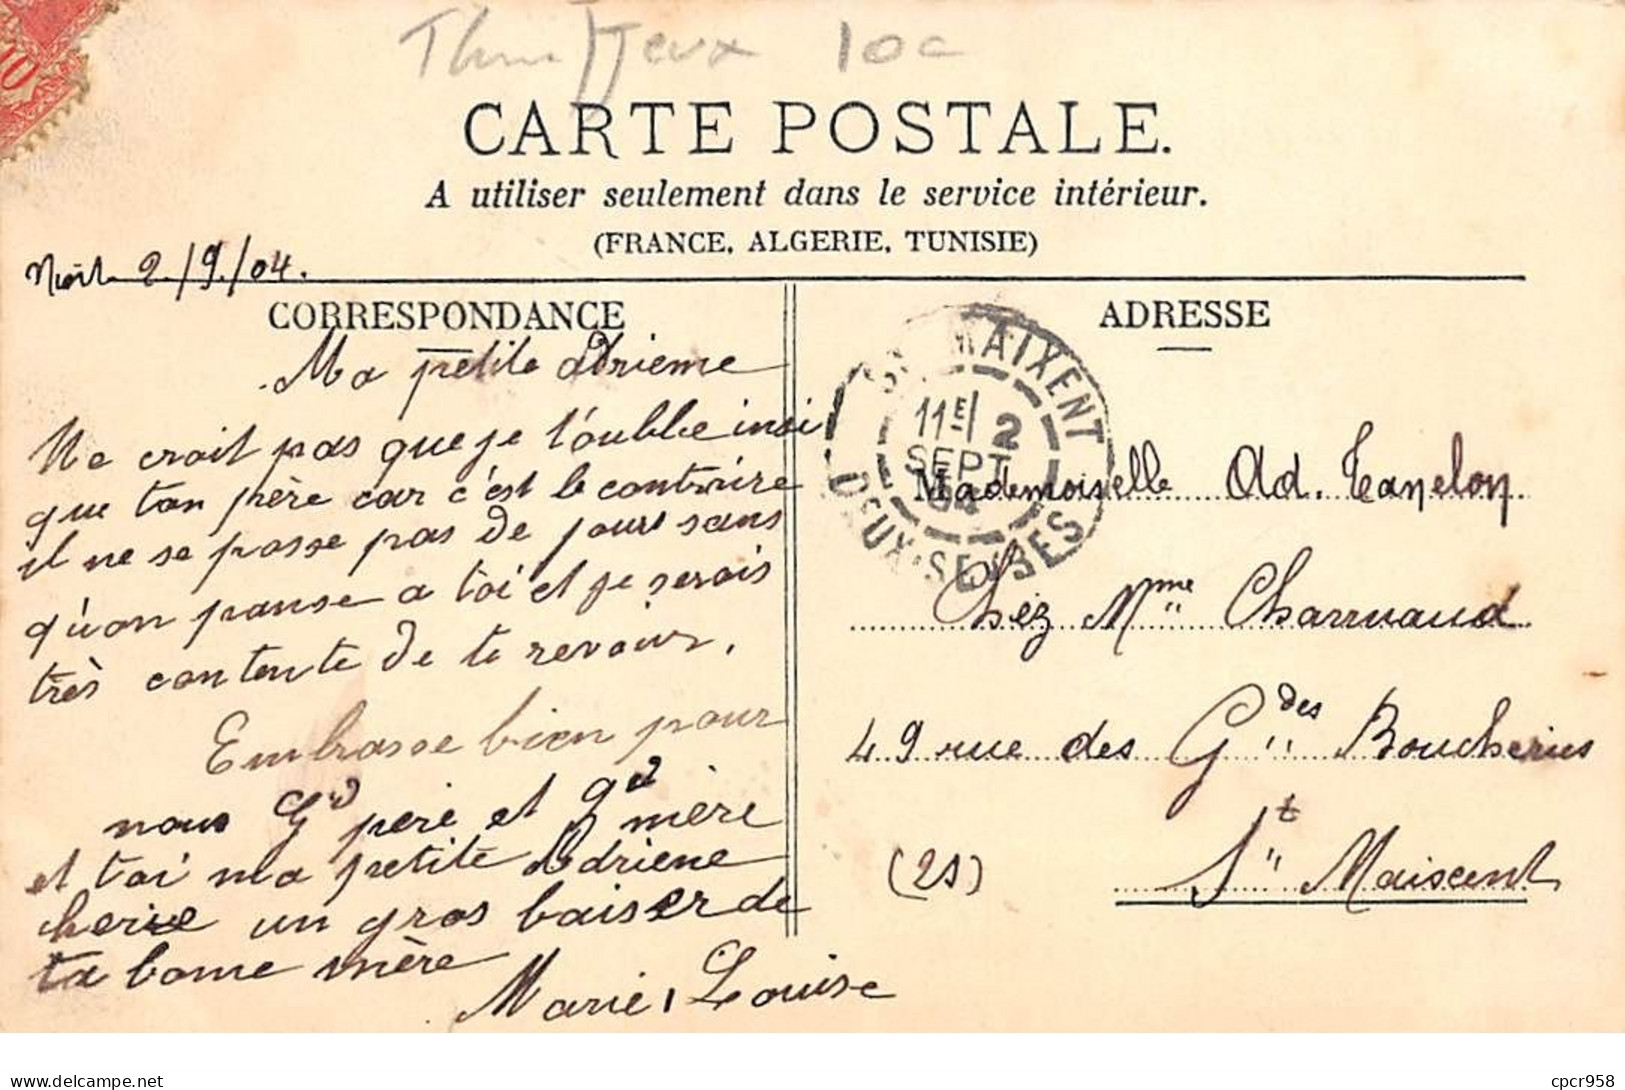 10c
10
CARTE POSTALE.
A utiliser seulement dans le service intérieur.
(FRANCE, ALGERIE, TUNISIE)
Niort 2/9/04.
CORRESPONDANCE
Ma petite Adrieme
Ne croit pas que je t'oublie insi
que ton père car c'est le contraire
il ne se passe pas de jours sans
qu'on panse a toi et je serais
très contente de te revoir.
Embrasse bien pour
nous Gd père et gd mère
et toi ma petite Adriene
cherie un gros baiser de
ta bonne mère
Marie Louise
ADRESSE
ST MAIXENT
11E 2
SEPT
04
DEUX-SEVRES
Mademoiselle Ad. Tanelon
Chez Mme Charruaud
49 rue des Gdes Boucheries
St Maixent
(2S)
cpcr958